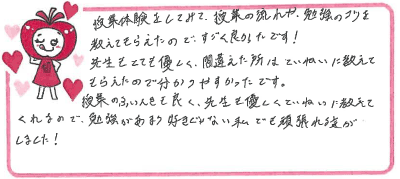 授業体験をしてみて、授業の流れや、勉強のコツを
教えてもらえたので、すごく良かったです!
先生もとても優しく、間違えた所はていねいに教えて
もらえたので分かりやすかったです。
授業のふんいきも良く、先生も優しくていねいに教えて
くれるので、勉強があまり好きじゃない私でも頑張れる気が
しました!